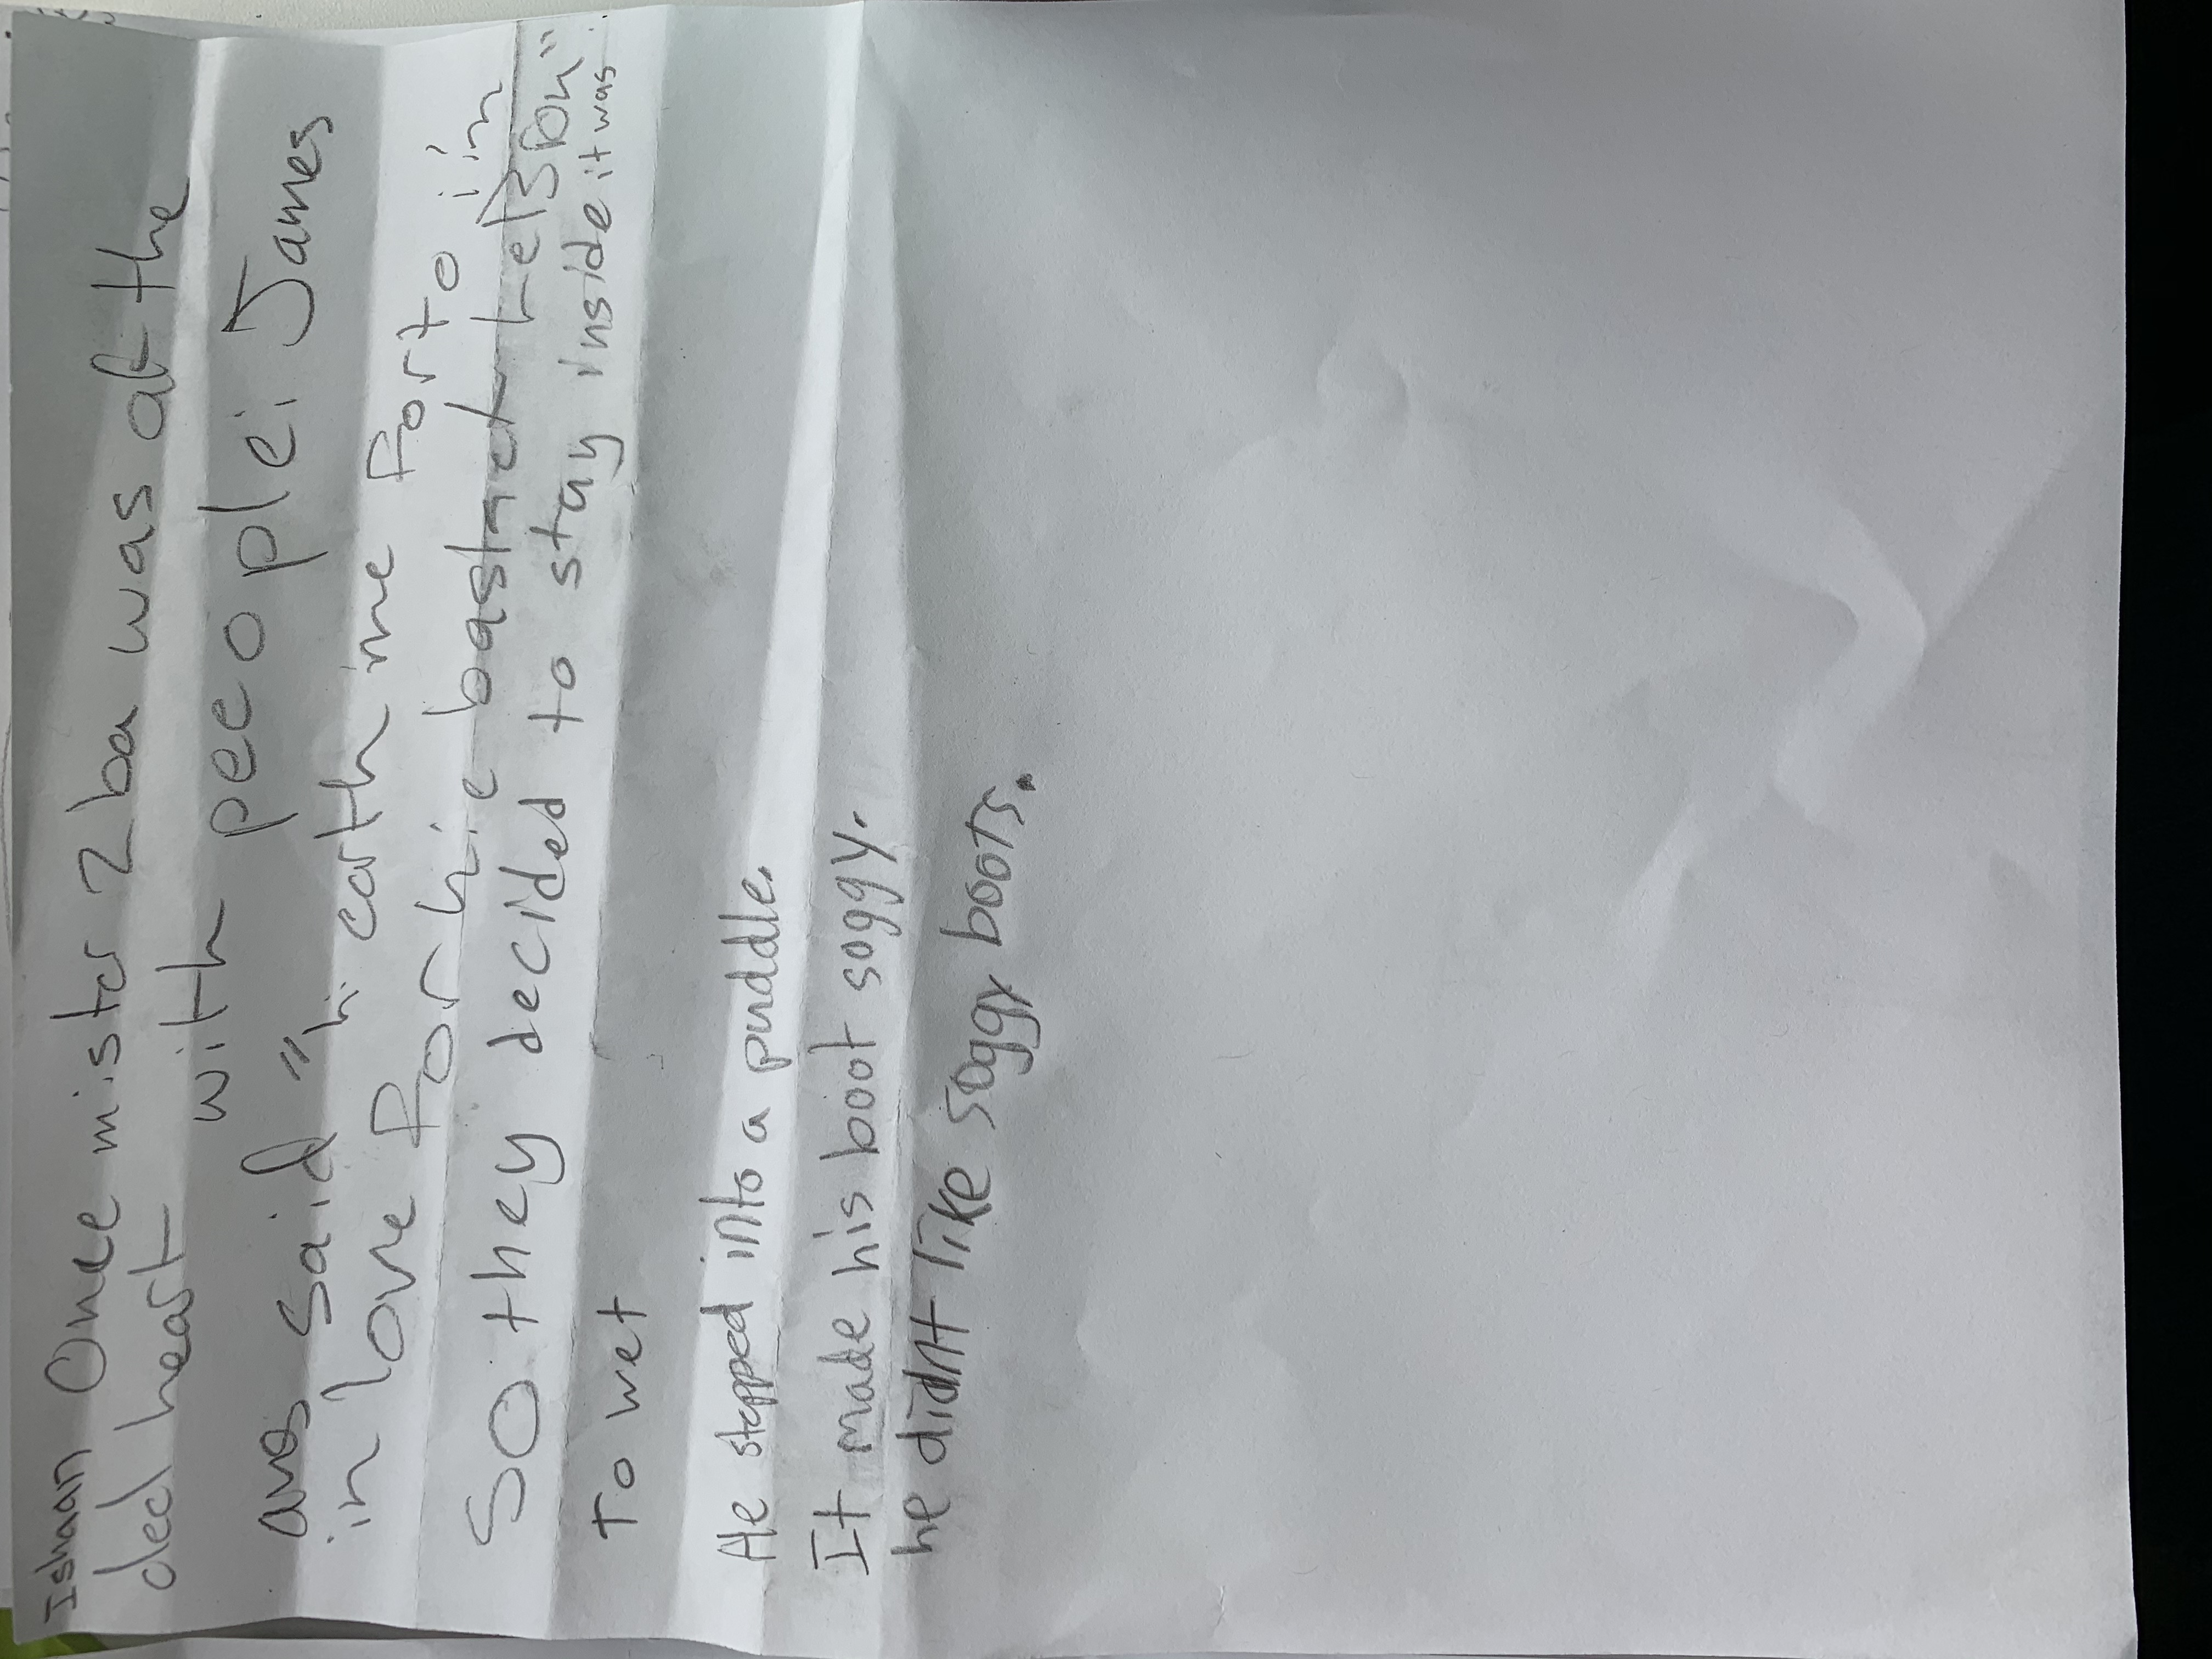 Ishaan Once mister 2 ba was at the
ded heart with peeople. James
said "hi earth me for to i'm
in love for hie
So they decided to stay inside it was
To wet
He stepped into a puddle.
It made his boot soggy.
he didnt like soggy boots.